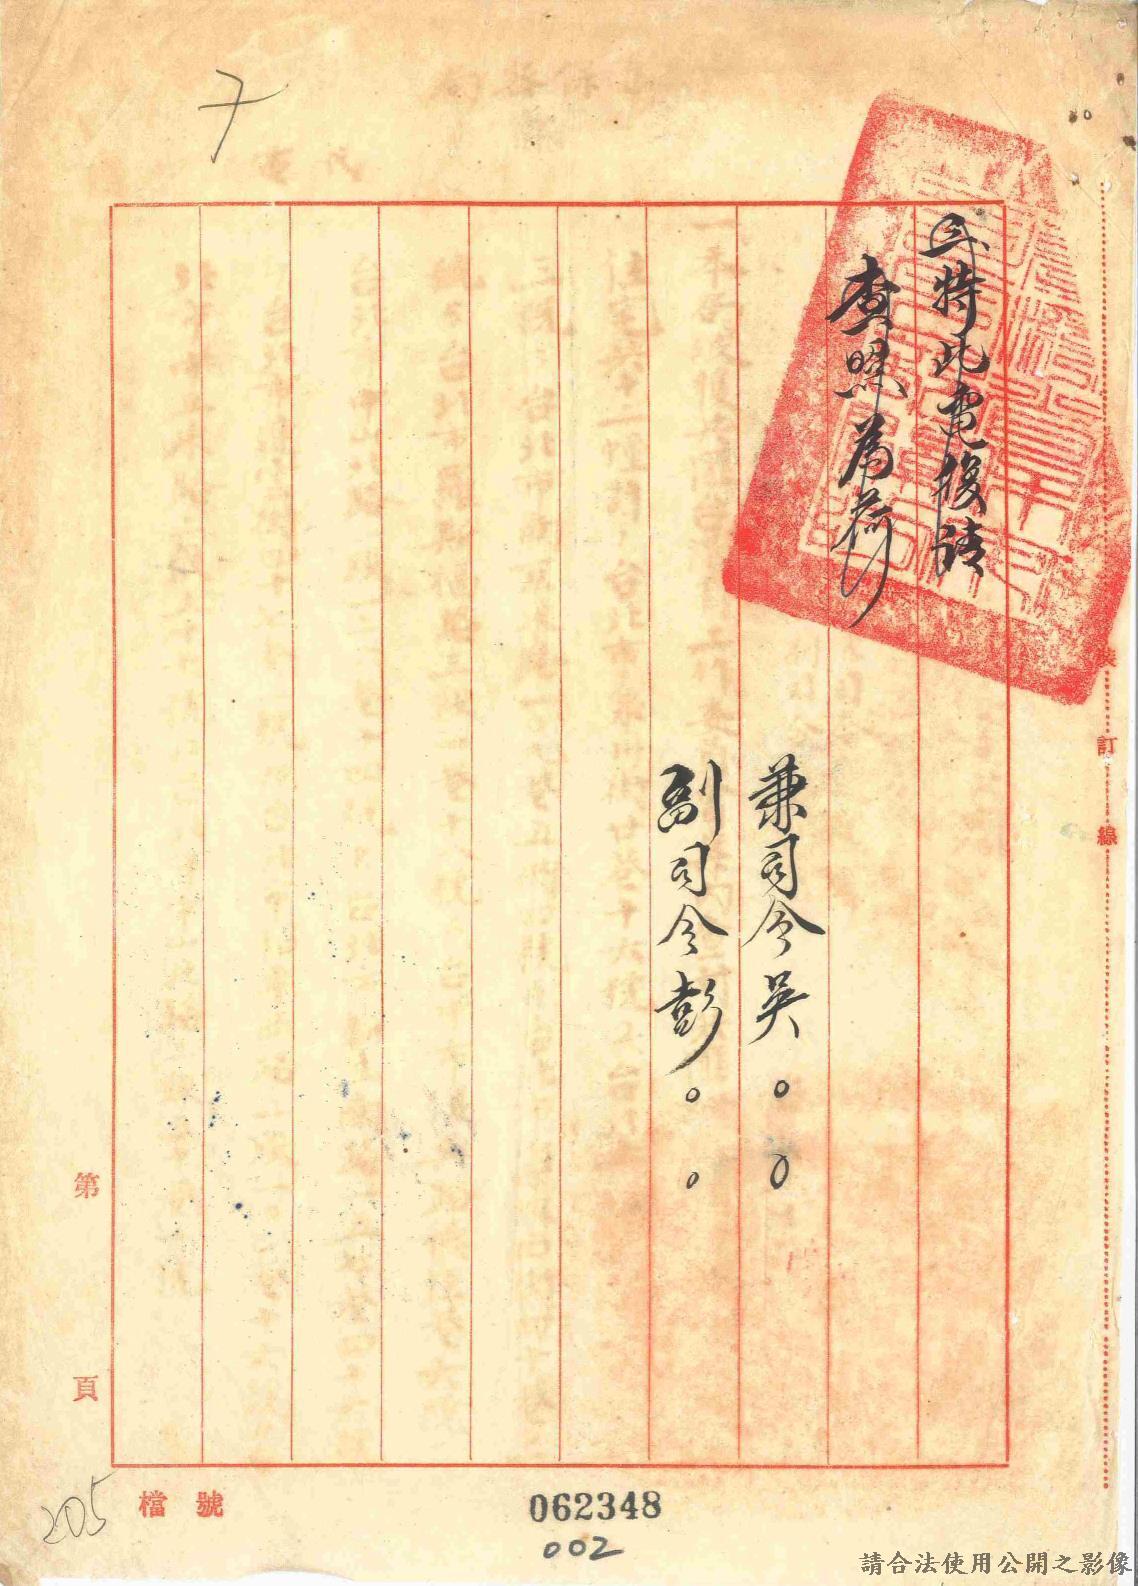 三特此電復請
查照為荷
兼司令吳。。
副司令彭。。
裝
訂
線
第
頁
檔號
205
062348
002
請合法使用公開之影像